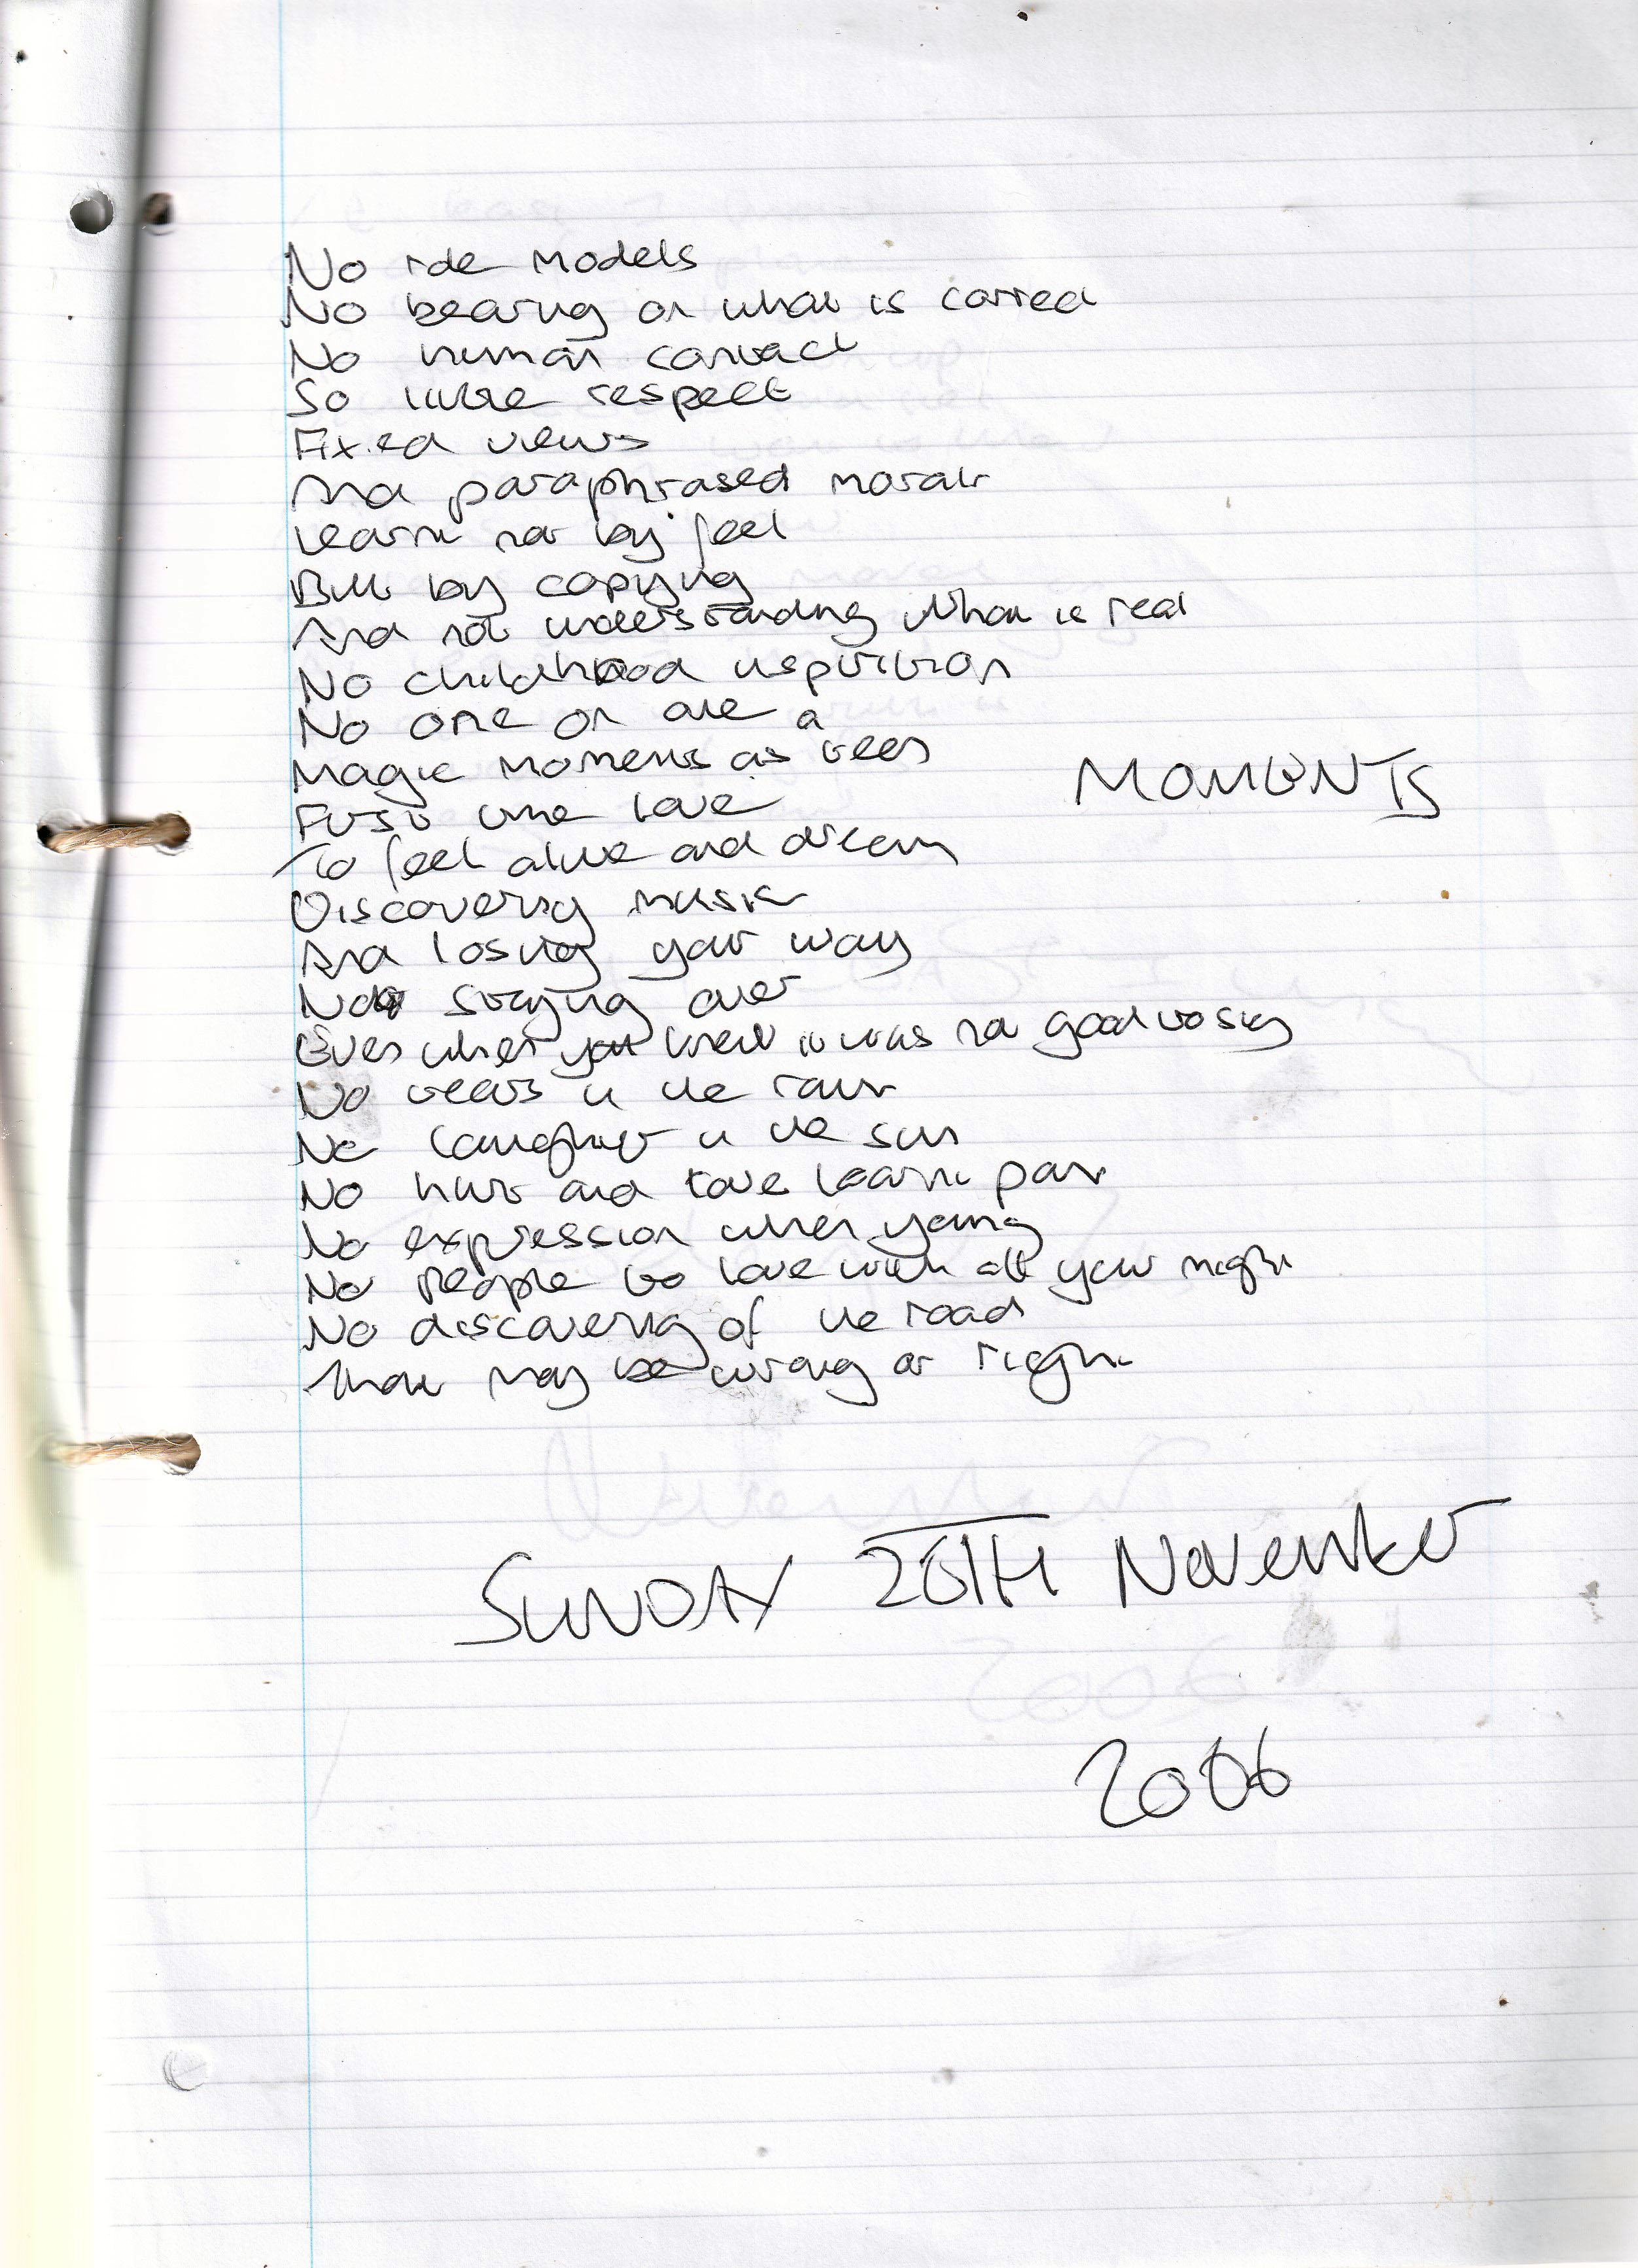 No role models
No bearing on what is correct
No human contact
So little respect
Fixed views
And paraphrased morals
Learnt not by feel
But by copying
And not understanding what is real
No childhood inspiration
No one on are a
Magic moments as teen
MOMENTS
First time love
To feel alive and dream
Discovering music
And losing your way
Not staying over
Even when you knew it was not good to stay
No tears in the rain
No laughter in the sun
No hurt and love learnt pain
No expression when young
No people to love with all your might
No discovering of the road
That may be wrong or right
SUNDAY 26TH November
2006